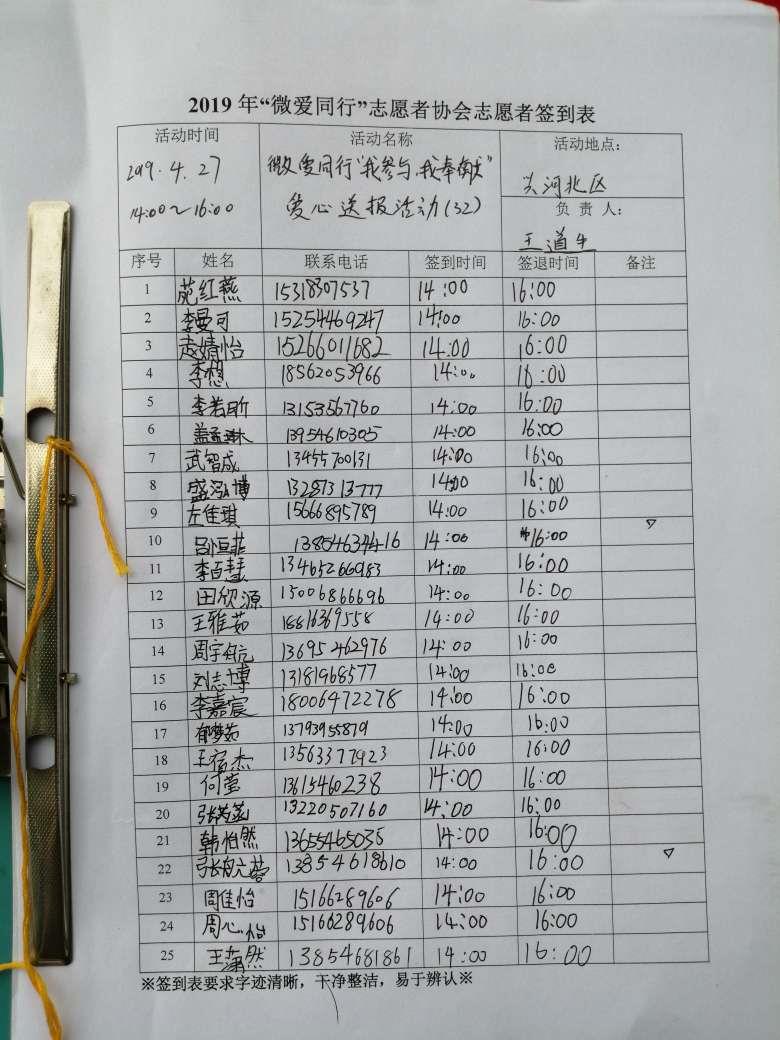 2019 年“微爱同行”志愿者协会志愿者签到表
活动时间 活动名称 活动地点：
2019.4.27 微爱同行“我参与，我奉献” 头河北区
14:00～16:00 爱心送报活动(32) 负 责 人：
王道生
序号 姓名 联系电话 签到时间 签退时间 备注
1 苑红燕 15318307537 14:00 16:00
2 李曼可 15254469247 14:00 16:00
3 赵婧怡 15266011682 14:00 16:00
4 李想 18562053966 14:00 16:00
5 李若昕 13153567760 14:00 16:00
6 盖孟琳 13954610305 14:00 16:00
7 武智成 13455700131 14:00 16:00
8 盛泓博 13287313777 14:00 16:00
9 左佳琪 15666895789 14:00 16:00
10 吕恒菲 14:00 16:00
11 李百慧 13465266983 14:00 16:00
12 田欣源 15006866696 14:00 16:00
13 王雅茹 18816369558 14:00 16:00
14 周宇航 13695462976 14:00 16:00
15 刘志博 13181968577 14:00 16:00
16 李嘉宸 18006472278 14:00 16:00
17 郁梦茹 13793955879 14:00 16:00
18 王宿杰 13563377923 14:00 16:00
19 何莹 13615460238 14:00 16:00
20 13220507160 14:00 16:00
21 韩怡然 13655465035 14:00 16:00
22 13854618610 14:00 16:00
23 周佳怡 15166289606 14:00 16:00
24 周心怡 15166289606 14:00 16:00
25 王潇然 13854681861 14:00 16:00
※签到表要求字迹清晰，干净整洁，易于辨认※